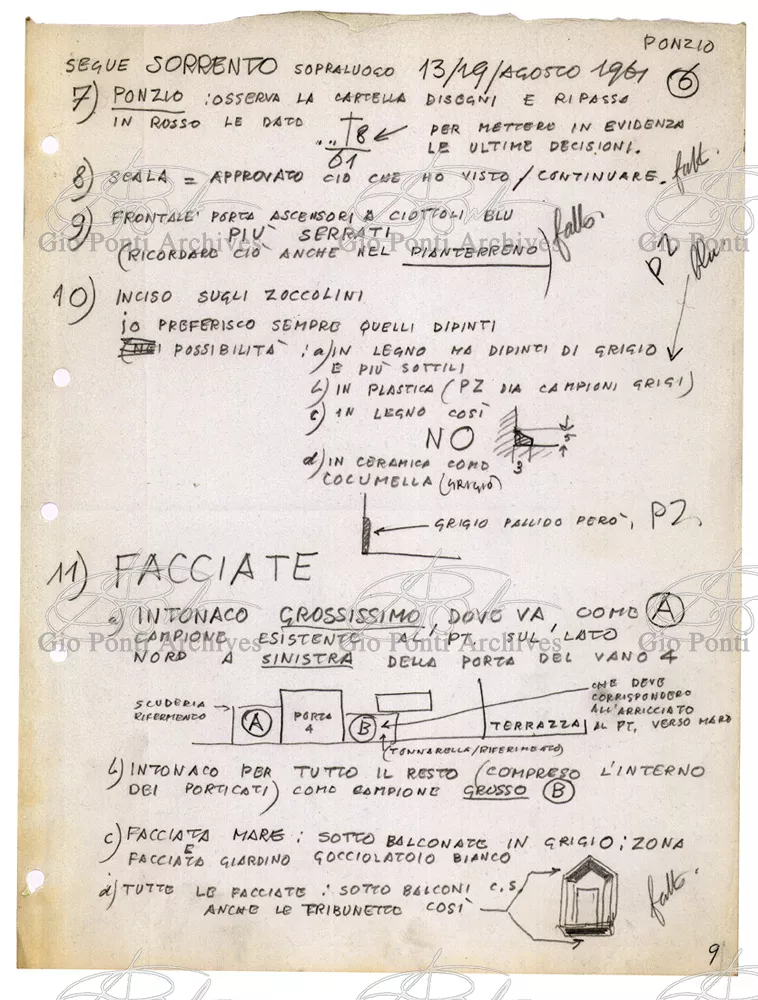 PONZIO
SEGUE SORRENTO SOPRALUOGO 13/19/AGOSTO 1961 6
7) PONZIO : OSSERVA LA CARTELLA DISEGNI E RIPASSA
IN ROSSO LE DATO
8
61
PER METTERE IN EVIDENZA
LE ULTIME DECISIONI.
8) SCALA = APPROVATO CIÒ CHE HO VISTO / CONTINUARE. fatto.
9) FRONTALE PORTA ASCENSORI A CIOTTOLI BLU
PIÙ SERRATI
(RICORDARE CIÒ ANCHE NEL PIANTERRENO) fatto.
PZ blu
10) INCISO SUGLI ZOCCOLINI
io PREFERISCO SEMPRE QUELLI DIPINTI
POSSIBILITÀ : a) IN LEGNO MA DIPINTI DI GRIGIO
E PIÙ SOTTILI
b) IN PLASTICA (PZ DIA CAMPIONI GRIGI)
c) IN LEGNO COSÌ
NO
5
3
d) IN CERAMICA COME
COCUMELLA (GRIGIO)
GRIGIO PALLIDO PERÒ, PZ
11) FACCIATE
a) INTONACO GROSSISSIMO, DOVE VA, COME A
CAMPIONE ESISTENTE AL PT. SUL LATO
NORD A SINISTRA DELLA PORTA DEL VANO 4
SCUDERIA
RIFERIMENTO
A
PORTA
4
B
TERRAZZA
CHE DEVE
CORRISPONDERE
ALL'ARRICCIATO
AL PT. VERSO MARE
(TONNARELLA/RIFERIMENTO)
b) INTONACO PER TUTTO IL RESTO (COMPRESO L'INTERNO
DEI PORTICATI) COME CAMPIONE GROSSO B
c) FACCIATA MARE : SOTTO BALCONATE IN GRIGIO ; ZONA
E
FACCIATA GIARDINO GOCCIOLATOIO BIANCO
d) TUTTE LE FACCIATE : SOTTO BALCONI C.S.
ANCHE LE TRIBUNETTE COSÌ
fatto.
9
Gio Ponti Archives
Gio Ponti Archives
Gio Ponti
Gio Ponti Archives
Gio Ponti Archives
Gio Ponti